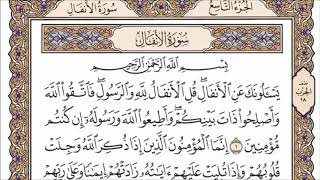 سُورَةُ الأَنفَالِ
الجُزءُ التَّاسِعُ
سُورَةُ الأَنفَالِ
بِسْمِ اللَّهِ الرَّحْمَٰنِ الرَّحِيمِ
يَسْـَٔلُونَكَ عَنِ ٱلْأَنفَالِ ۖ قُلِ ٱلْأَنفَالُ لِلَّهِ وَٱلرَّسُولِ ۖ فَٱتَّقُوا۟ ٱللَّهَ
وَأَصْلِحُوا۟ ذَاتَ بَيْنِكُمْ ۖ وَأَطِيعُوا۟ ٱللَّهَ وَرَسُولَهُۥٓ إِن كُنتُم
مُّؤْمِنِينَ ١ إِنَّمَا ٱلْمُؤْمِنُونَ ٱلَّذِينَ إِذَا ذُكِرَ ٱللَّهُ وَجِلَتْ
قُلُوبُهُمْ وَإِذَا تُلِيَتْ عَلَيْهِمْ ءَايَـٰتُهُۥ زَادَتْهُمْ إِيمَـٰنًا وَعَلَىٰ رَبِّهِمْ